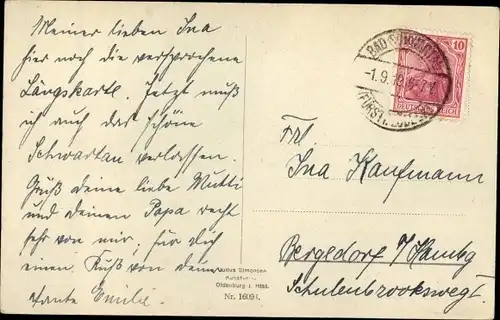 Meiner lieben Ina
hier noch die versprochene
Längskarte. Jetzt muß
ich auch das schöne
Schwartau verlassen.
Grüß deine liebe Mutti
und deinen Papa recht
sehr von mir; für dich
einen Kuß von deiner
Tante Emilie.
BAD SCHWARTAU
-1.9.
10
DEUTSCHES REICH
Frl
Ina Kaufmann
Bergedorf b/Hambg
Schulenbrooksweg I
Julius Simonsen
Oldenburg i. Holst.
Nr. 1609